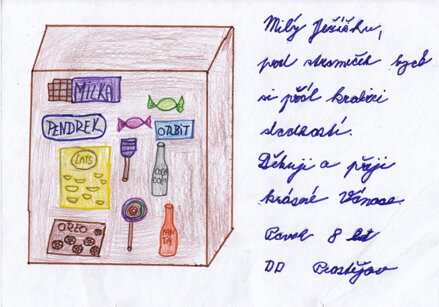 MILKA
PENDREK
ORBIT
LAYS
COCA
COLA
OREO
FAN
TA
Milý Ježíšku,
pod stromeček bych
si přál krabici
sladkostí.
Děkuji a přeji
krásné Vánoce.
Pavel 8 let
DD Prostějov